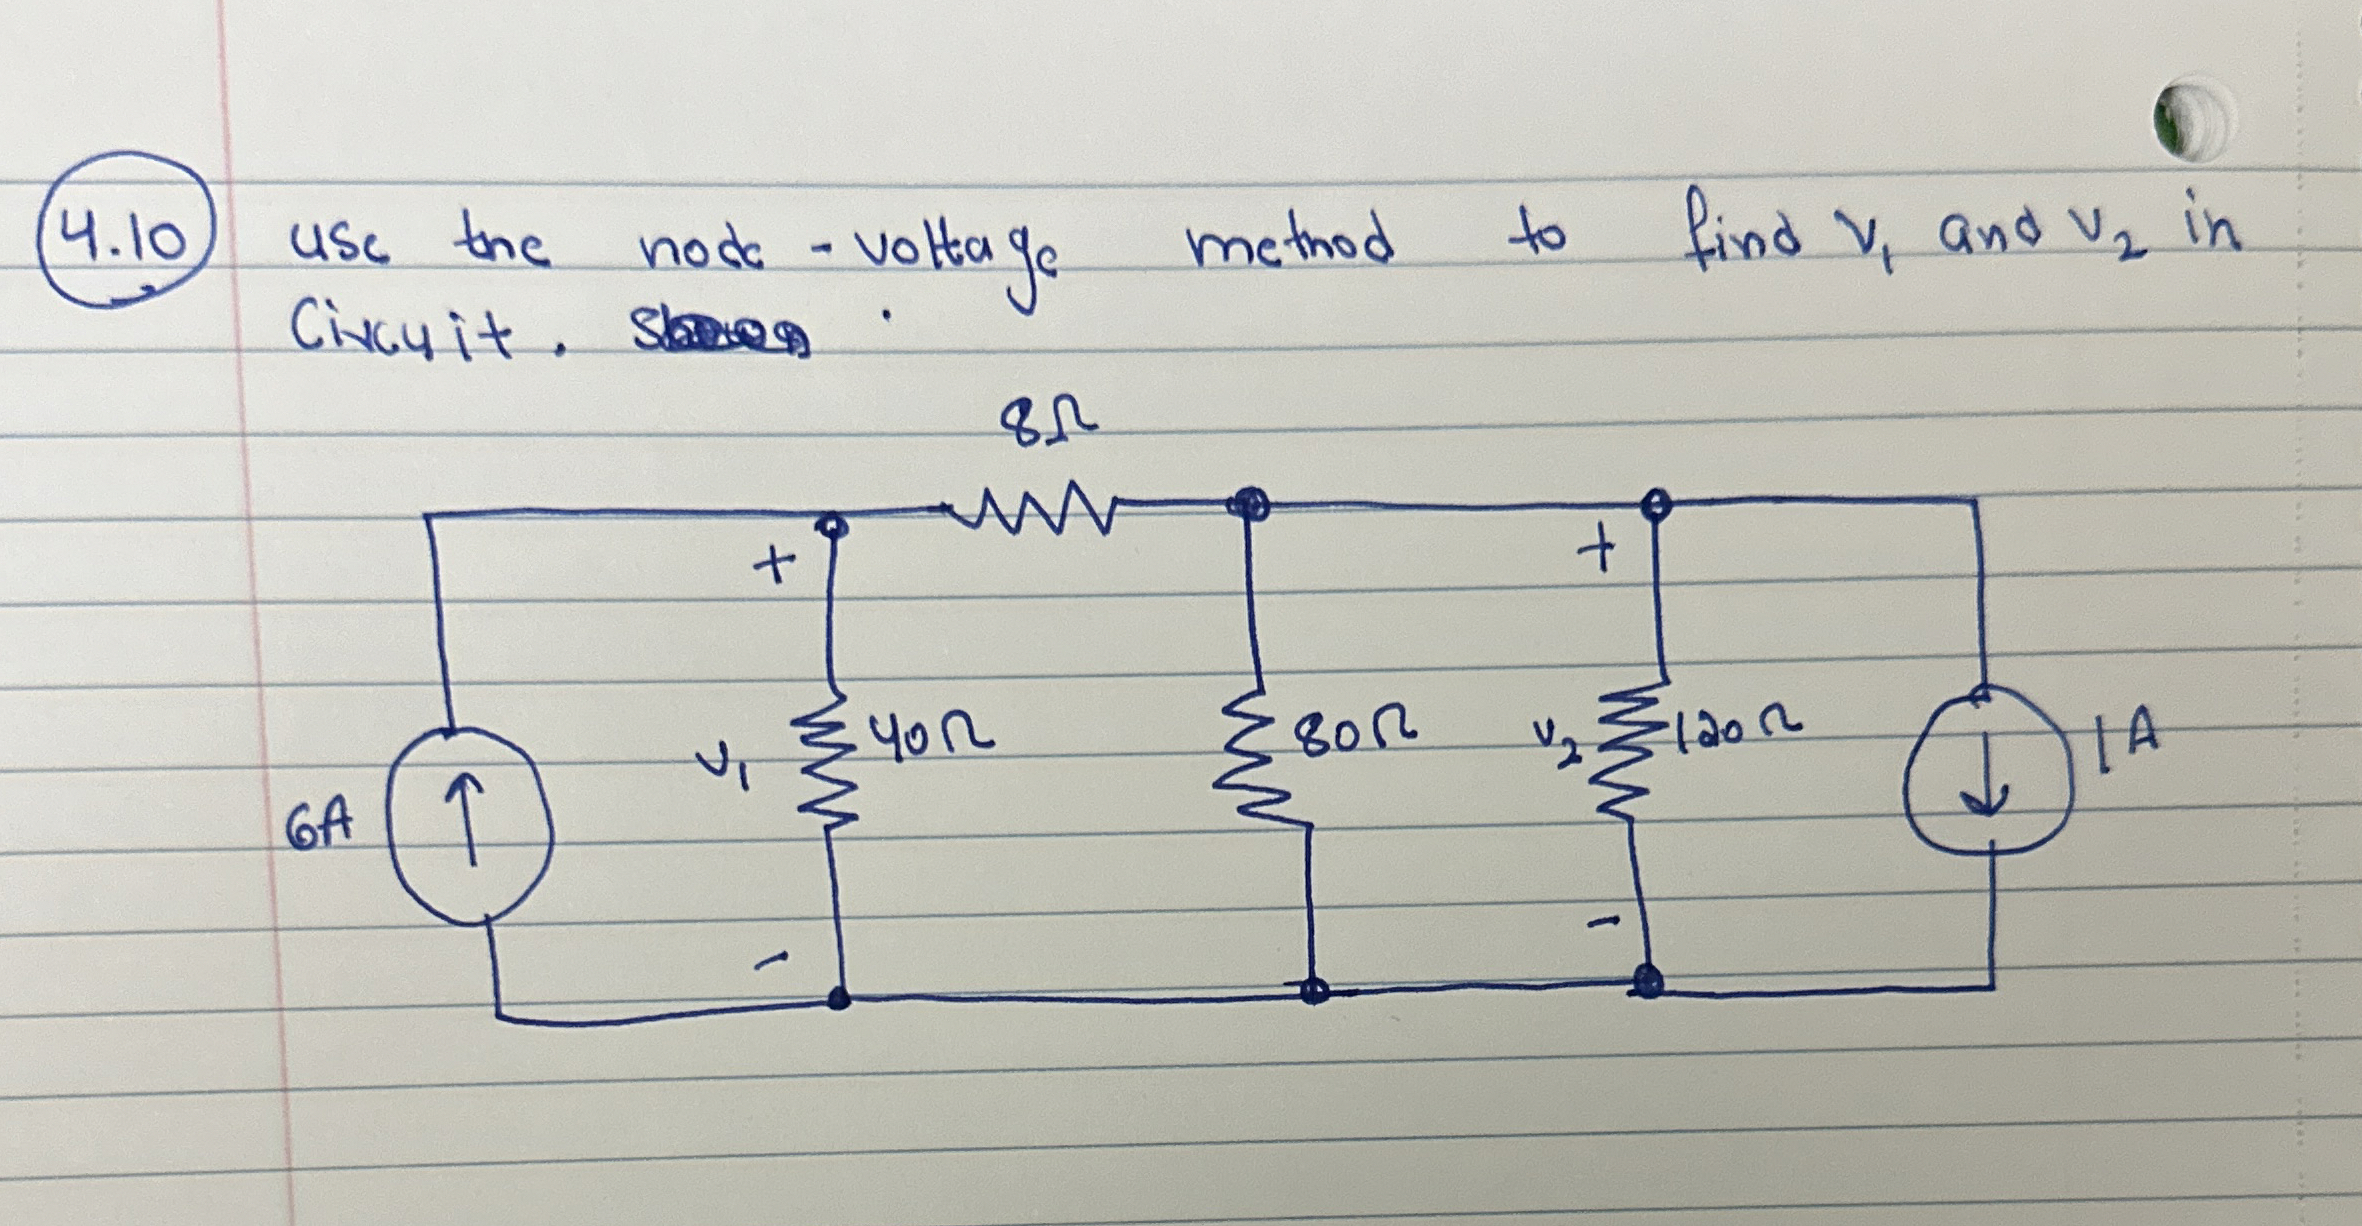 4.10 Use the node-voltage method to find v₁ and v₂ in
Circuit.
8Ω
+ +
v₁ 40Ω 80Ω v₂ 120Ω 1A
6A
- -